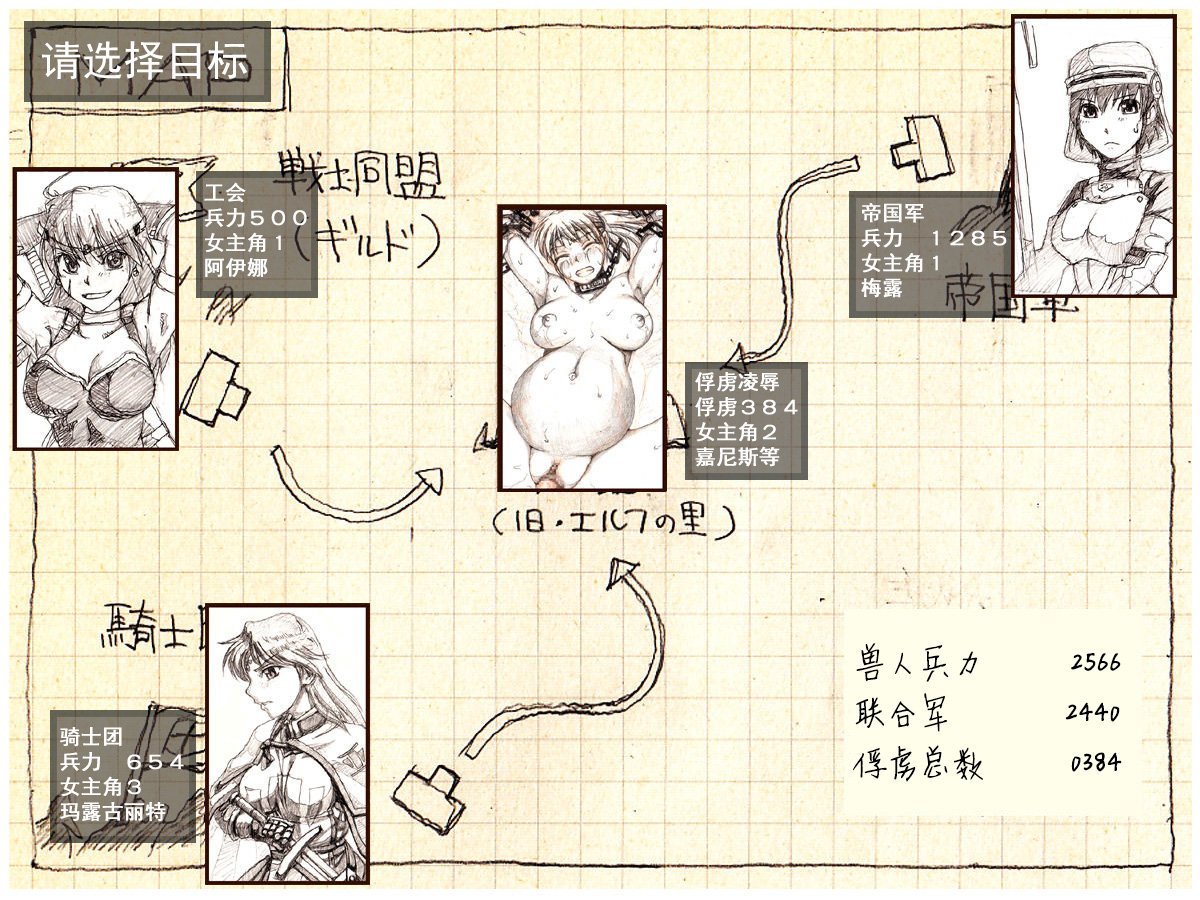 请选择目标
MAP
戦士同盟
(ギルド)
工会
兵力５００
女主角１
阿伊娜
帝国军
兵力　１２８５
女主角１
梅露
帝国軍
俘虏凌辱
俘虏３８４
女主角２
嘉尼斯等
(旧・エルフの里)
騎士団
骑士团
兵力　６５４
女主角３
玛露古丽特
兽人兵力 2566
联合军 2440
俘虏总数 0384